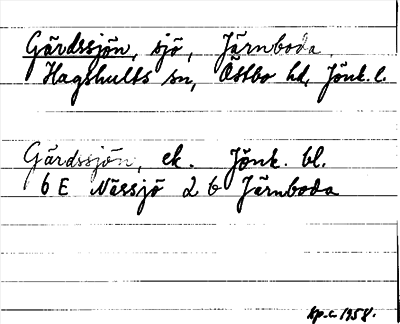 Gärdssjön, sjö, Järnboda
Hagshults sn, Östbo hd, Jönk. l.
Gärdssjön, ek. Jönk. bl.
6 E Nässjö 2 b Järnboda
kp.c. 1958.